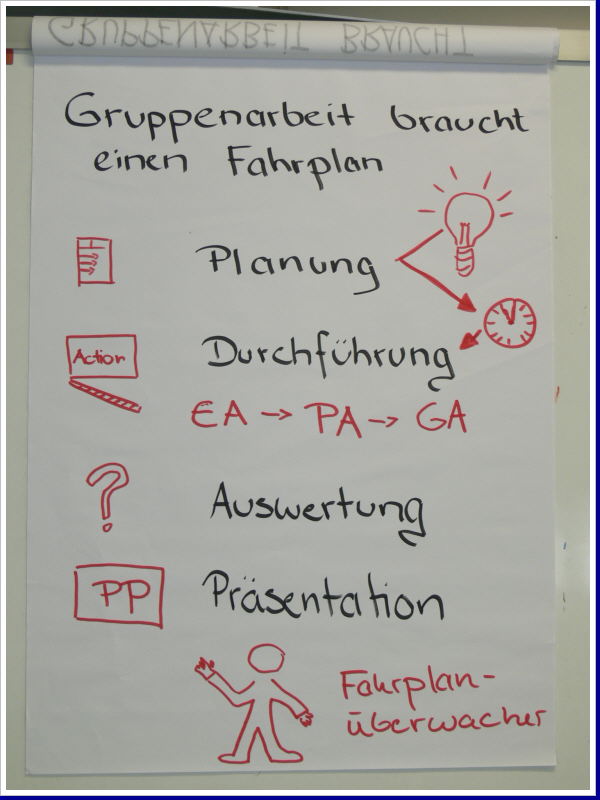 GRUPPENARBEIT BRAUCHT
Gruppenarbeit braucht
einen Fahrplan
Planung
Action
Durchführung
EA → PA → GA
?
Auswertung
PP
Präsentation
Fahrplan-
überwacher